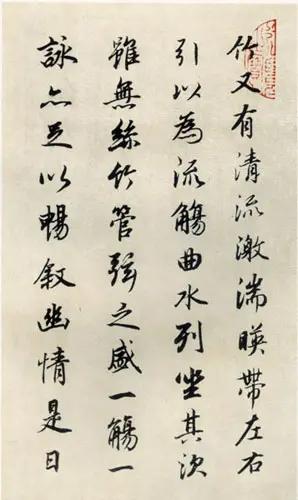 竹又有清流激湍暎帶左右
引以為流觴曲水列坐其次
雖無絲竹管弦之盛一觴一
詠亦足以暢叙幽情是日